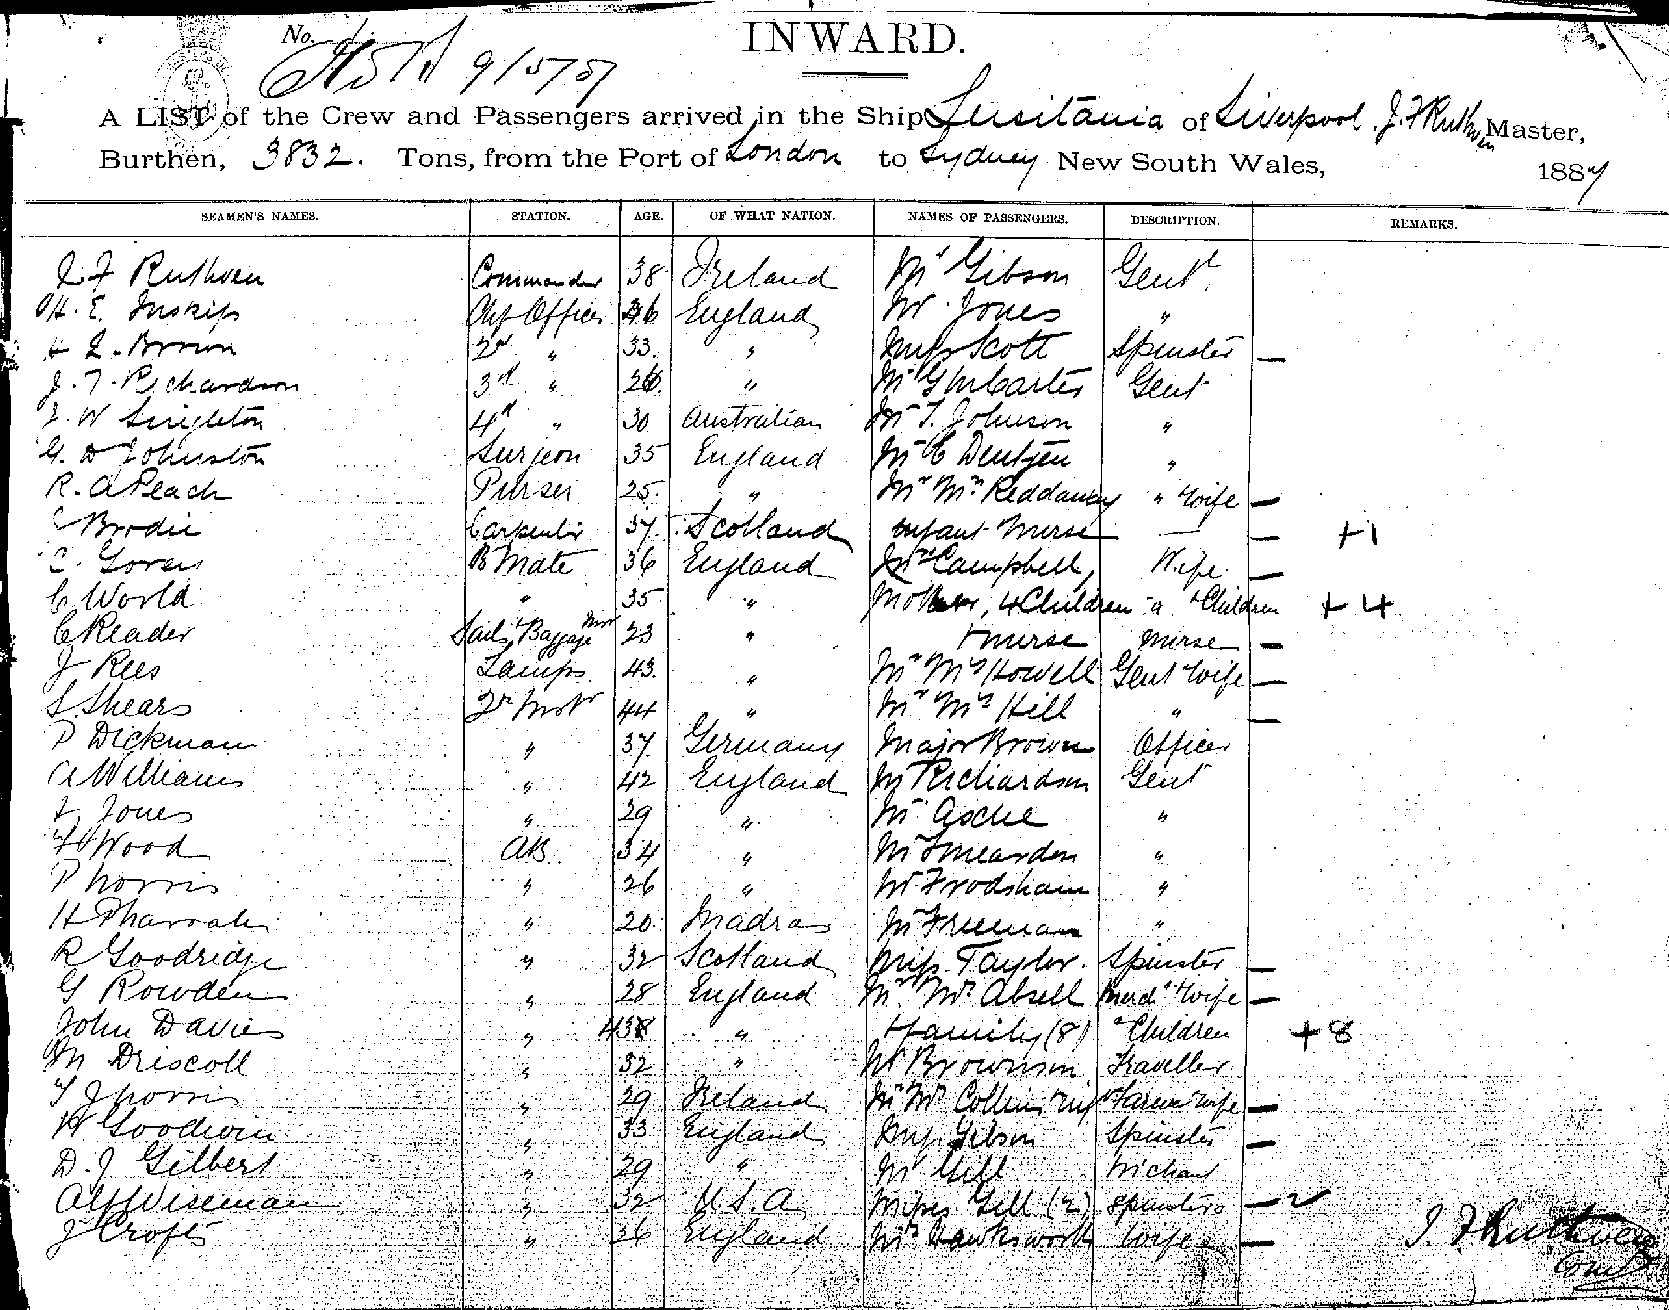 INWARD.
No. 9/5/87
A LIST of the Crew and Passengers arrived in the Ship Lusitania of Liverpool. J. F Ruthven Master,
Burthen, 3832. Tons, from the Port of London to Sydney New South Wales, 1887
SEAMEN'S NAMES. STATION. AGE. OF WHAT NATION. NAMES OF PASSENGERS. DESCRIPTION. REMARKS.
J F Ruthven Commander 38 Ireland Mr Gibson Gent
H. E. Inskip Chf Officer 26 England Mr Jones "
Brown 2nd " 33 " Miss Scott Spinster —
J. T. Richardson 3rd " 26 " Mr Carter Gent
W Singleton 4th " 30 Australian Mr T. Johnson "
G. D Johnston Surgeon 35 England Mr C Dentzen "
R. A Peach Purser 25 " Mr Mrs Reddaway " Wife —
C Brodie Carpenter 37 Scotland Infant Nurse — — +1
C. Govers B Mate 36 England Mrs Campbell, Wife —
C World " 35 " Mother, 4 Children " Children +4
C Reader Sails Baggage Mstr 23 " + nurse nurse —
J Rees Lamps 43 " Mr Mrs Howell Gent Wife —
S. Shears Qr Mstr 44 " Mr Mrs Hill " —
P Dickman " 37 Germany Major Brown Officer
A Williams " 42 England Mr Richardson Gent
Jones " 29 " Mr Asche "
Wood AB 34 " Mr Smeardon "
P Norris " 26 " Mr Frodsham "
H Pharoah " 20 Madras Mr Freeman "
R Goodridge " 32 Scotland Miss Taylor. Spinster —
G Rowden " 28 England Mr Mrs Absell Wife —
John Davies " 38 " + family (8) " Children +8
M Driscoll " 32 " Mr Brownson Traveller
T J Norris " 29 Ireland Mr Mrs Collins Farmer Wife —
W Goodwin " 33 England Miss Gibson Spinster —
D. J Gilbert " 29 " Mr Gill
Alf Wiseman " 32 U.S.A Misses Gill (2) Spinsters —
J Crofts " 36 England Mrs Hawksworth Wife —
J. F Ruthven